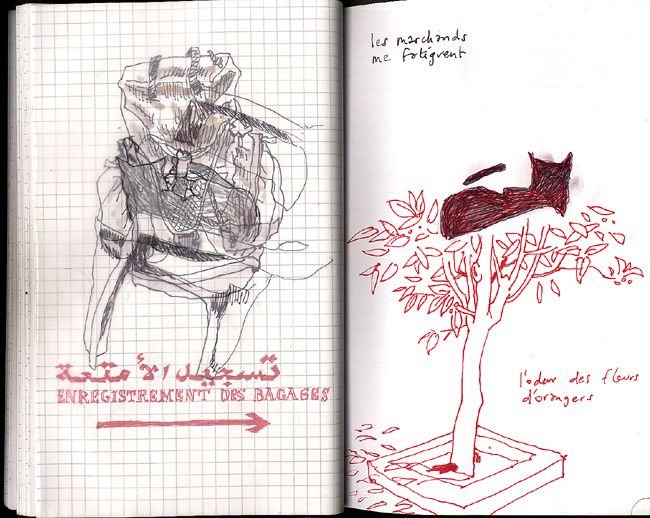 تسجيل الأمتعة
ENREGISTREMENT DES BAGAGES
les marchands
me fatiguent
l'odeur des fleurs
d'orangers